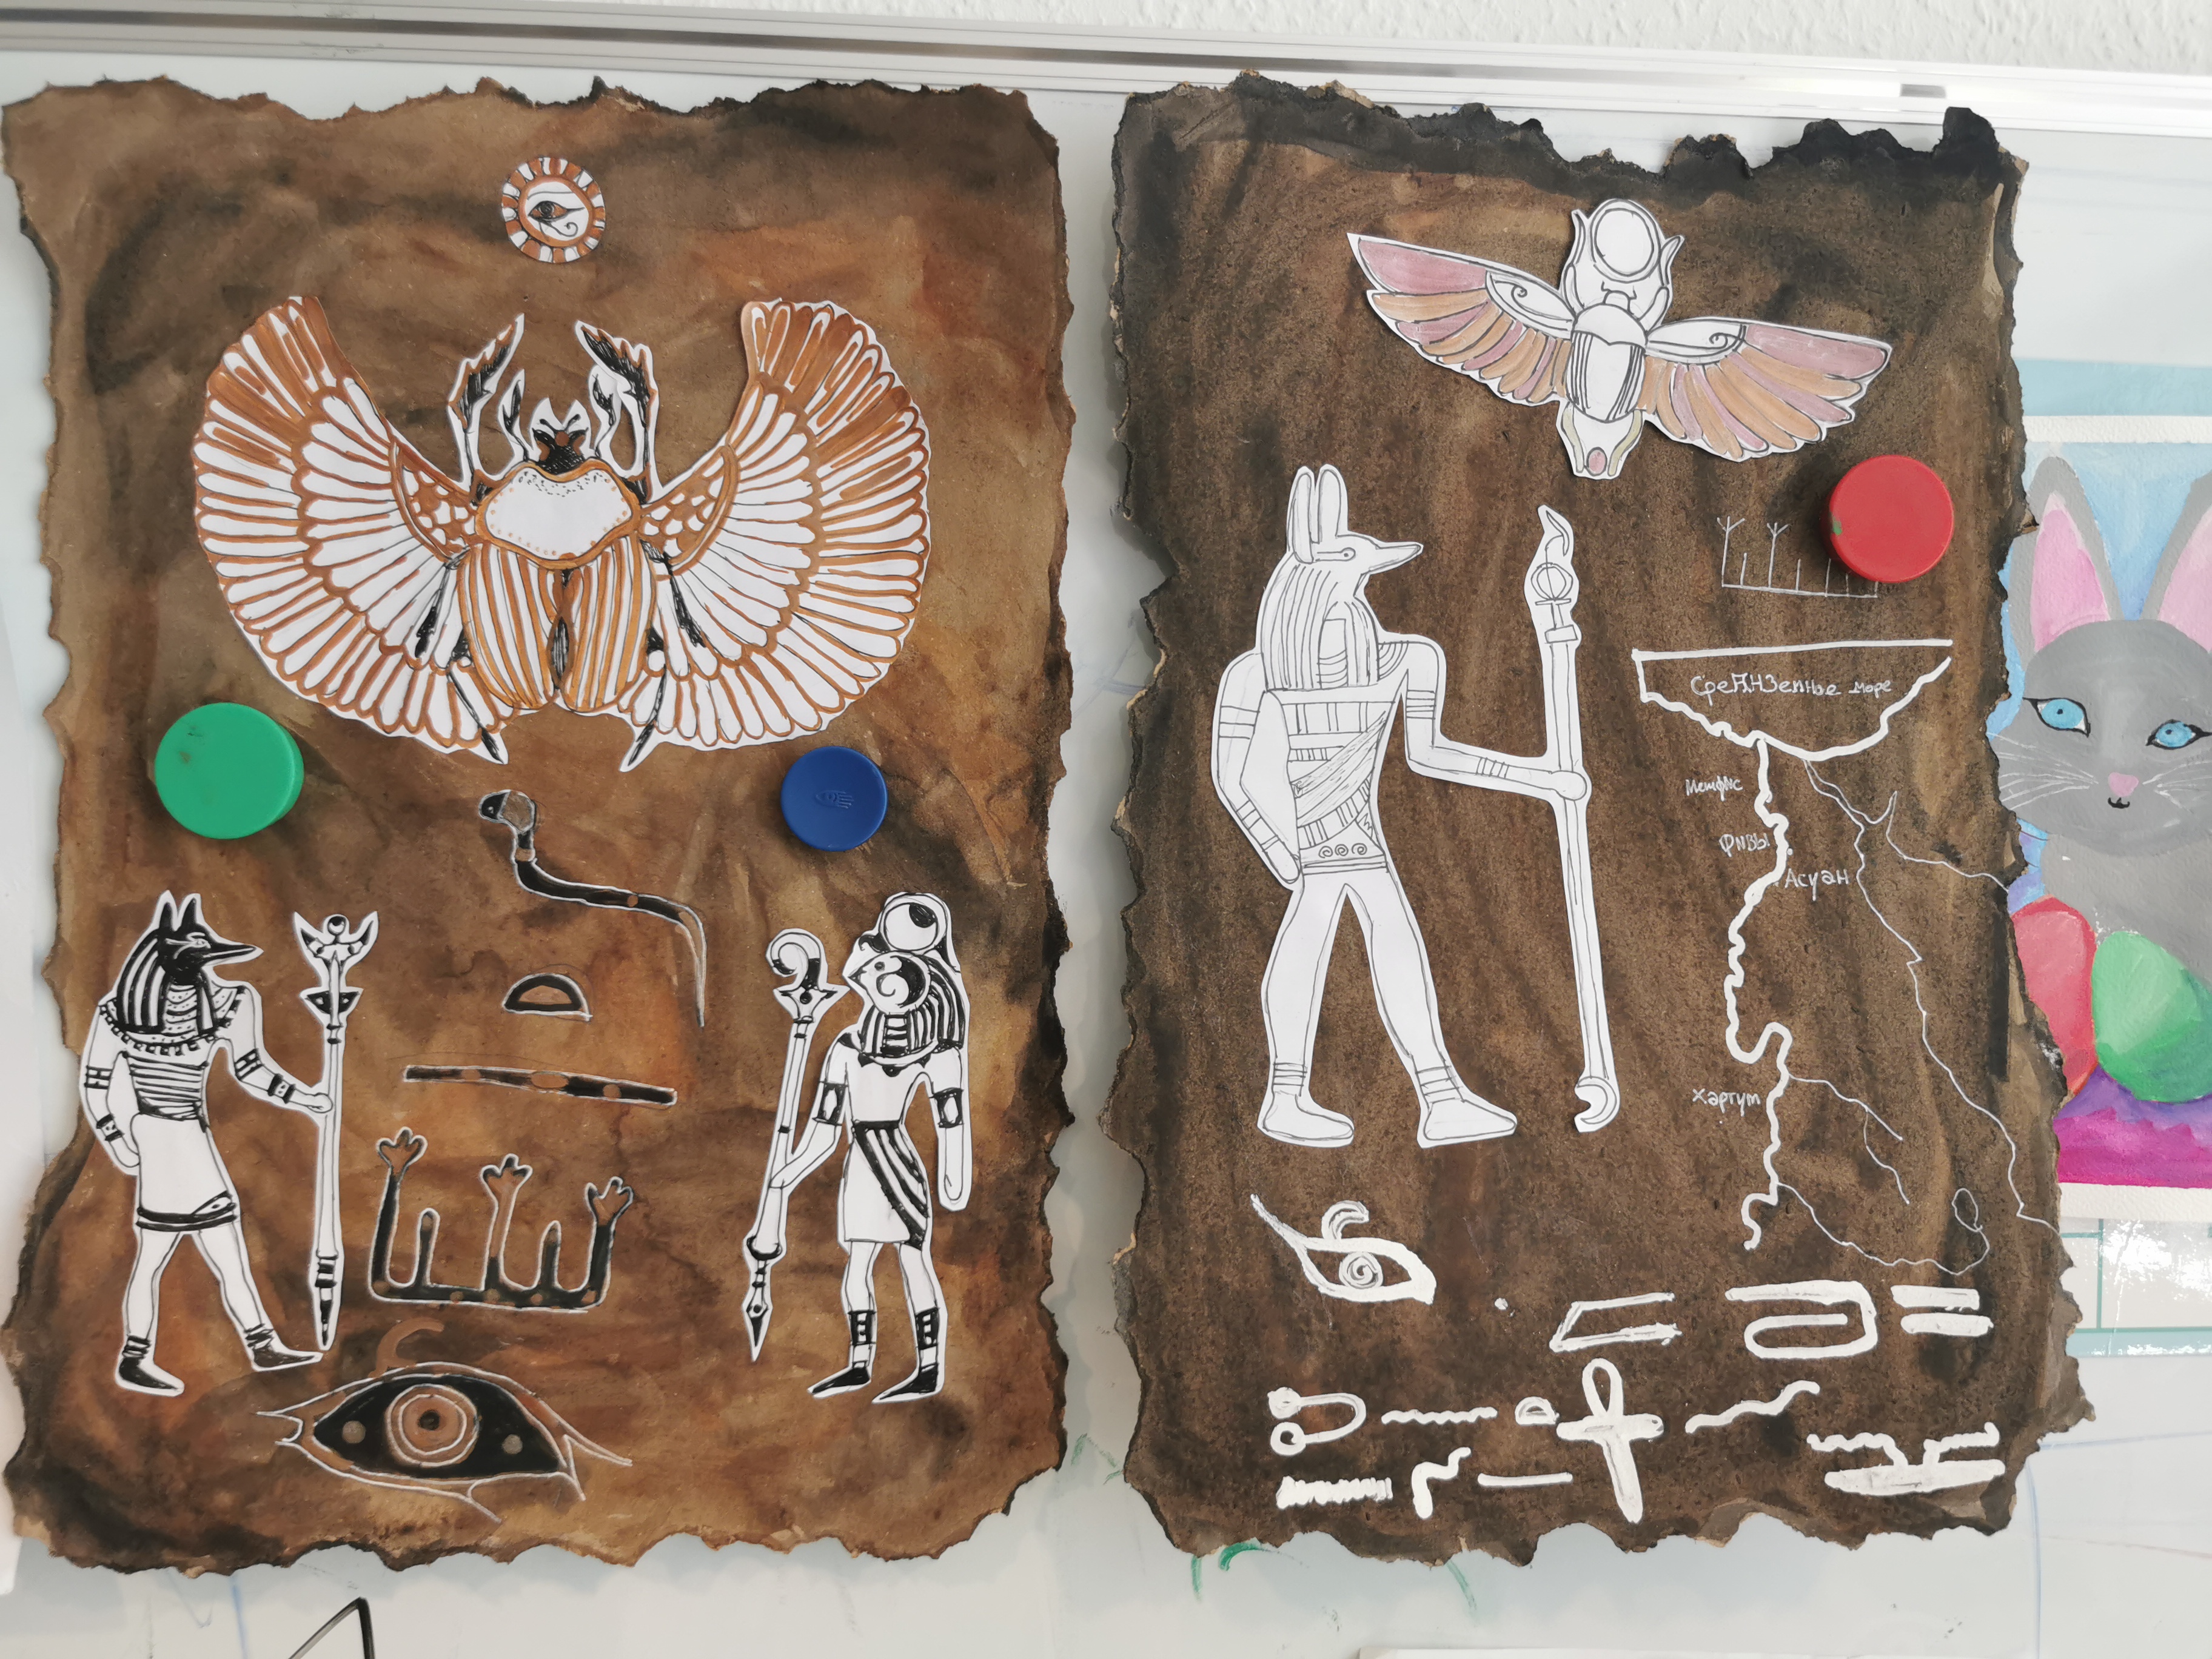 Средиземные море
Мемфис
Фивы
Асуан
Хартум